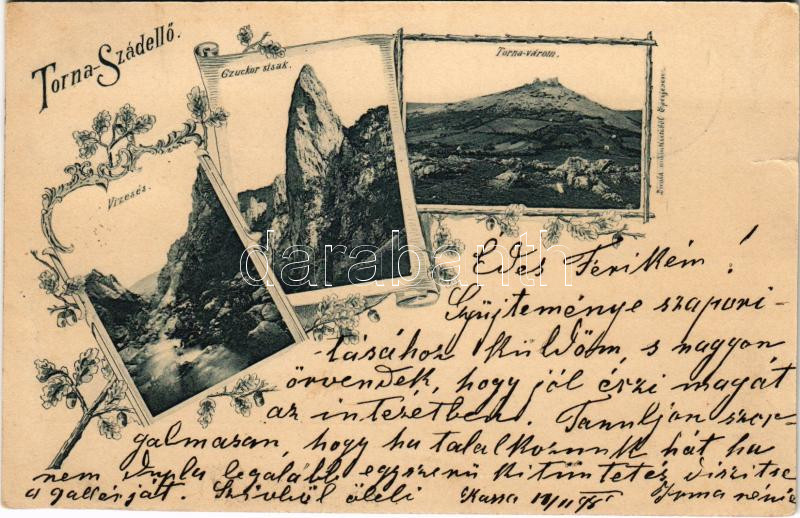 Torna-Szádellő.
Czuckor sisak.
Torna-várom.
Vizesés.
Divald műintézetéből Eperjesen.
darabanth
Édes Férikém!
Gyüjteménye szapori-
tásához küldöm, s nagyon
örvendek, hogy jól érzi magát
az intézetben. Tanuljon szor-
galmasan, hogy ha talalkozunk hát ha
nem dupla legalább egyszerü kitüntetés diszitse
a gallérját. Szivböl öleli Kassa Irma néni